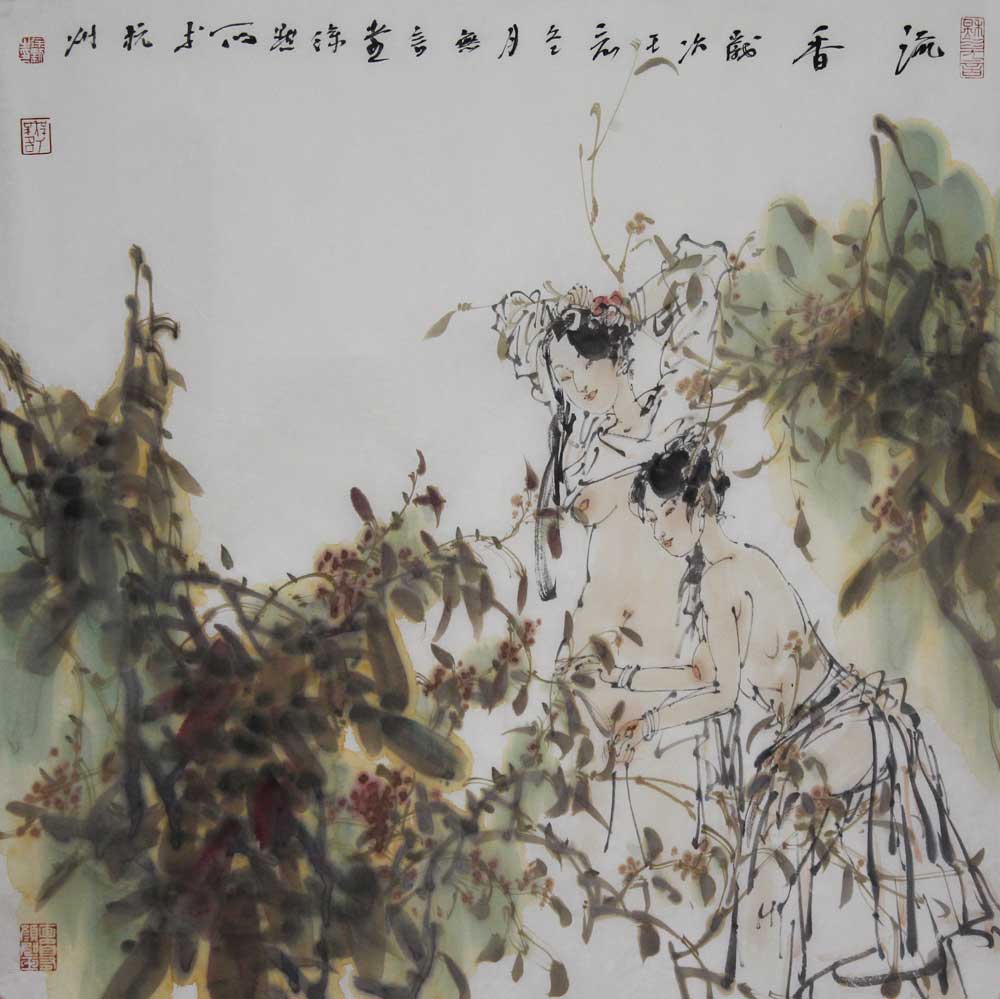 流香 歲次壬辰冬月無言堂徐默於杭州